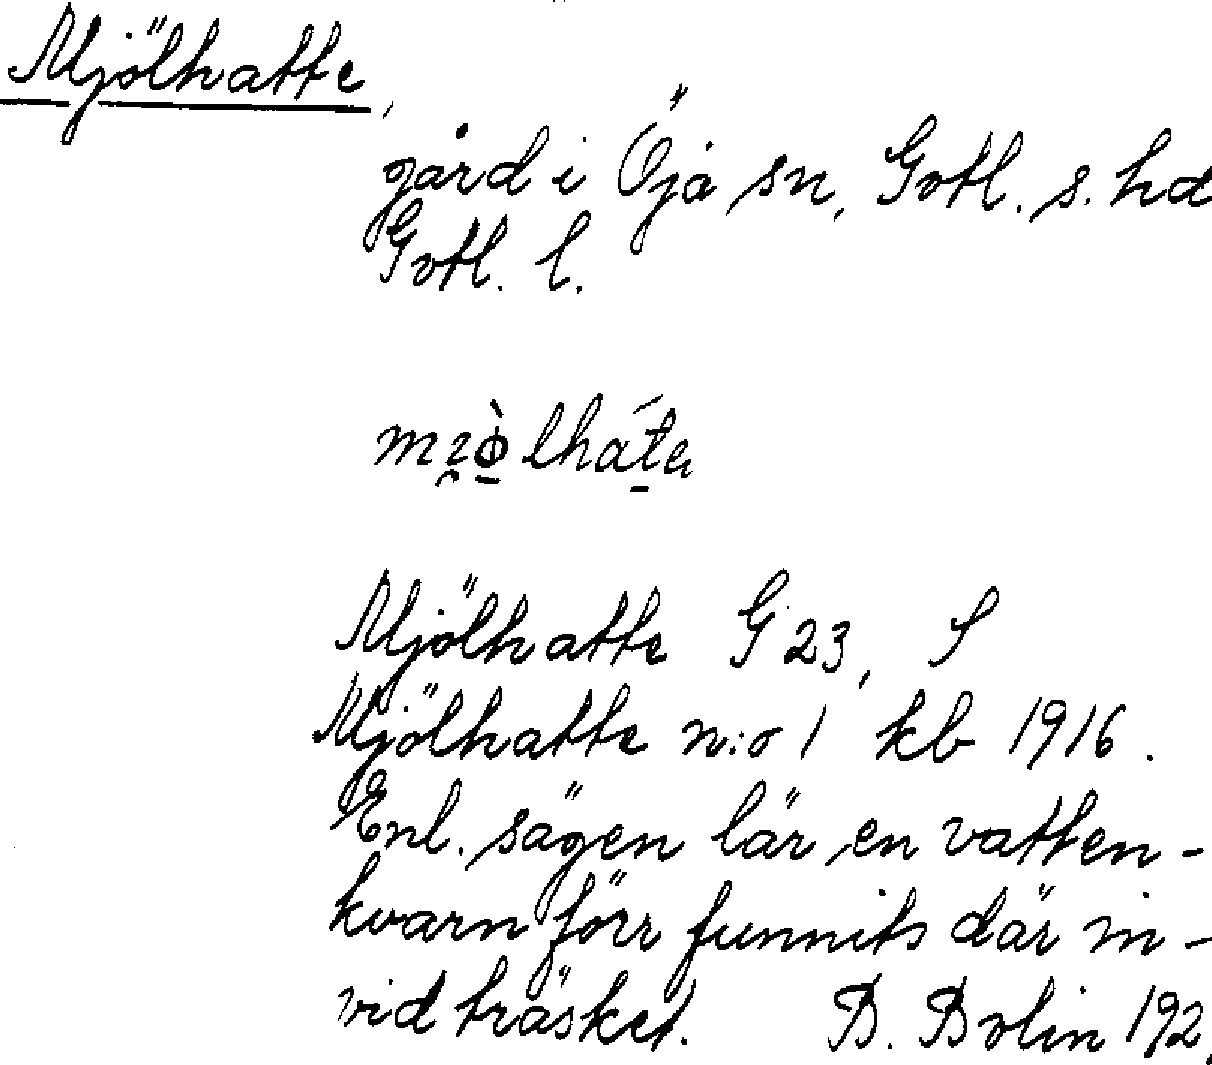 Mjölhatte,
gård i Öja sn, Gotl. s. hd
Gotl. l.
Mjölhatte G 23, S
Mjölhatte n:o 1 kb 1916.
Enl. sägen lär en vatten-
kvarn förr funnits där in-
vid träsket. B. Bolin 192